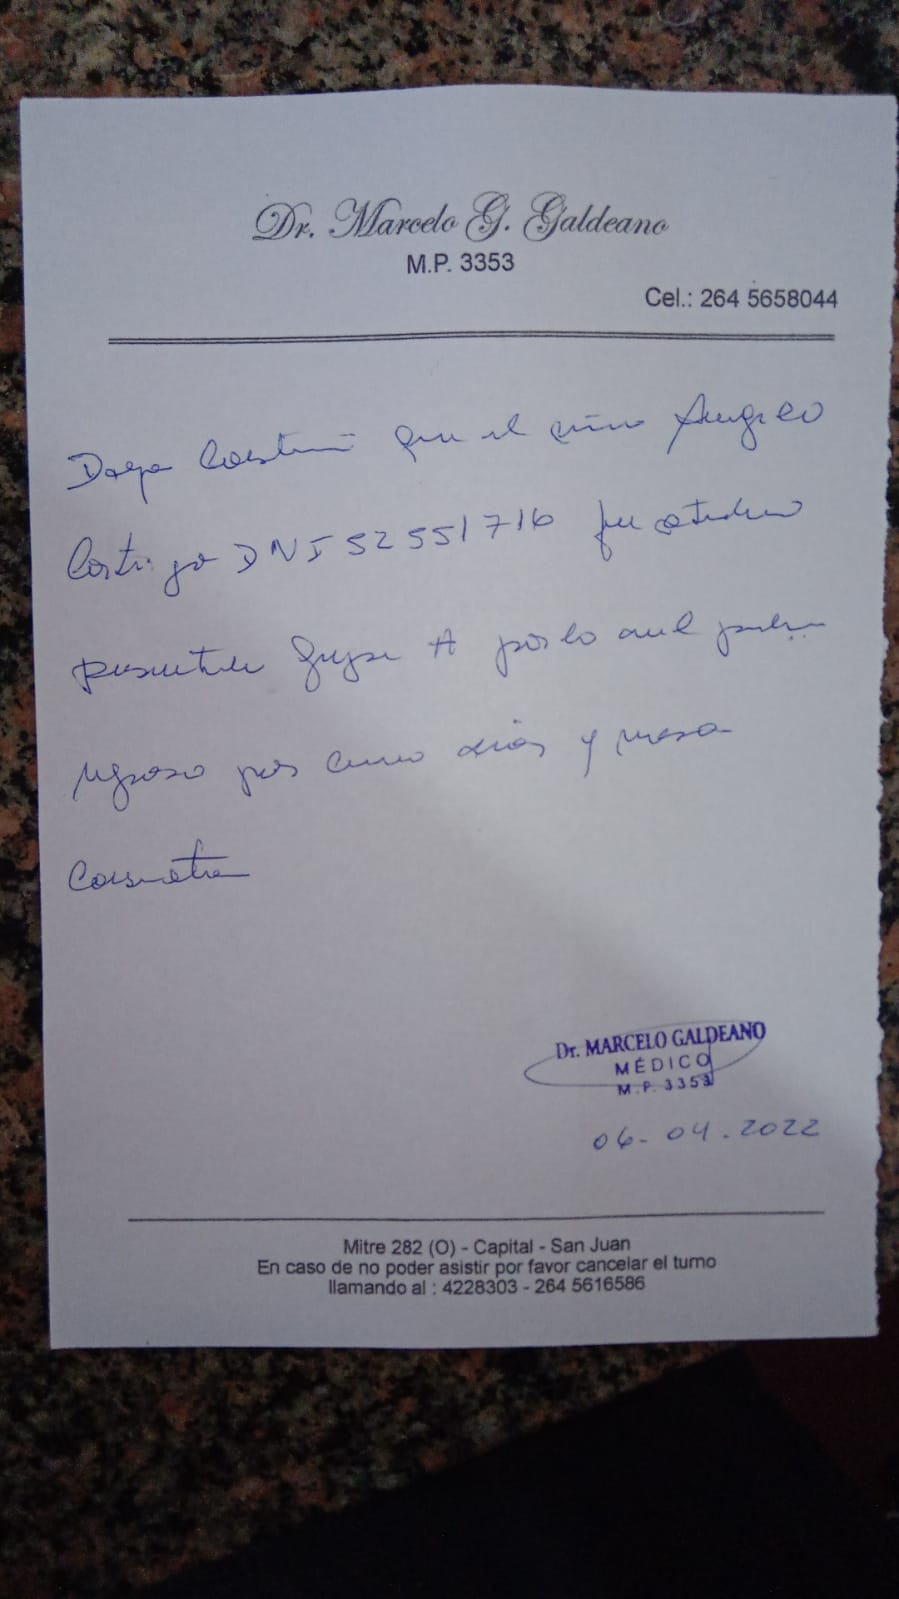 Dr. Marcelo G. Galdeano
M.P. 3353
Cel.: 264 5658044
Dejo constancia que el niño Angelo
DNI 52551716 fue atendido
presentando gripe A por lo cual
reposo por cinco días y nueva
Dr. MARCELO GALDEANO
MÉDICO
M.P. 3353
06-04.2022
Mitre 282 (O) - Capital - San Juan
En caso de no poder asistir por favor cancelar el turno
llamando al : 4228303 - 264 5616586